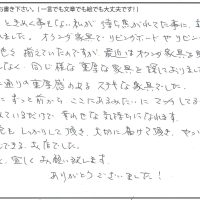 お書き下さい。(一言でも文章でも絵でも大丈夫です!)
ときれた事をない私が 待ち焦がれてた事に、ま
れました。オランダ家具でリビングボードやリビン
を 揃えていたのですが 最近はオランダ家具を
なく、同じ様な重厚な家具を探しておりまし
通りの重厚感のあるステキな家具でした。
ずっと前から、ここにあるみたいにマッチしてる
ているだけで 幸せな気持ちになります。
もしっかりして頂き、大切に届けて頂き、やっ
できる お店でした。
、宜しくお願い致します。
ありがとうございました!